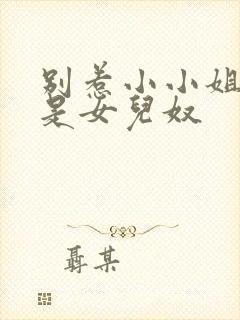 别惹小小姐
是女兒奴
聶某